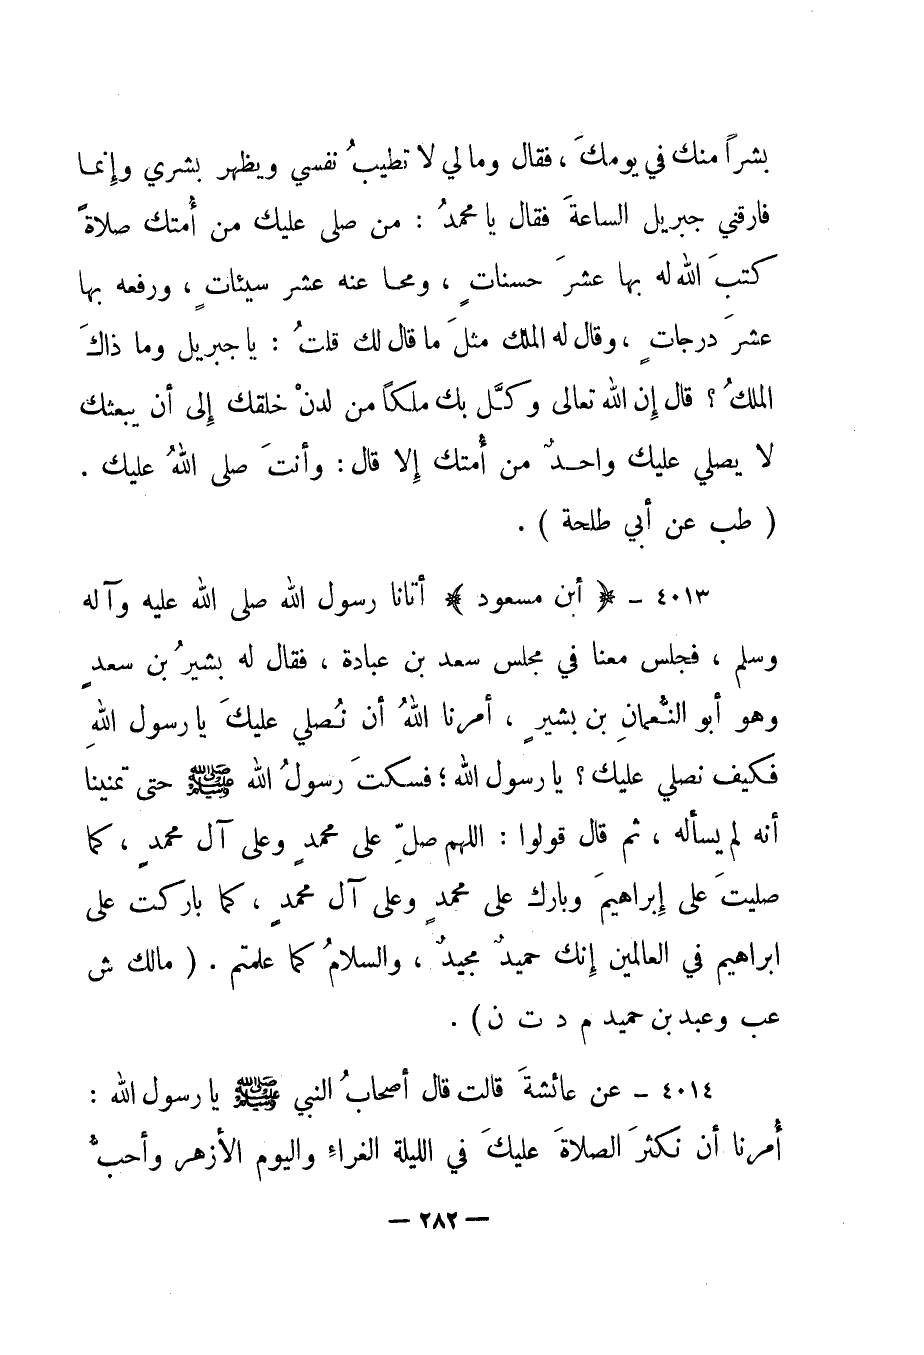 بشراً منك في يومكَ ، فقال ومالي لا تطيبُ نفسي ويظهر بشري وإنما
فارقني جبريل الساعةَ فقال يا محمدُ : من صلى عليك من أُمتك صلاةً
كتبَ الله له بها عشرَ حسناتٍ ، ومحا عنه عشر سيئاتٍ ، ورفعه بها
عشرَ درجاتٍ ، وقال له الملك مثلَ ما قال لك قلتُ : يا جبريل وما ذاكَ
الملكُ ؟ قال إن الله تعالى وكَّل بك ملكاً من لدنْ خلقك إلى أن يبعثك
لا يصلي عليك واحدٌ من أُمتك إلا قال : وأنتَ صلى اللهُ عليك .
( طب عن أبي طلحة ) .
٤٠١٣ ـ ﴿ أبن مسعود ﴾ أتانا رسول الله صلى الله عليه وآله
وسلم ، فجلس معنا في مجلس سعد بن عبادة ، فقال له بشيرُ بن سعدٍ
وهو أبو النُّعمانِ بن بشيرٍ ، أمرنا اللهُ أن نُصلي عليكَ يا رسول اللهِ
فكيف نصلي عليك ؟ يا رسول الله ؛ فسكتَ رسولُ الله ﷺ حتى تمنينا
أنه لم يسأله ، ثم قال قولوا : اللهم صلِّ على محمدٍ وعلى آل محمدٍ ، كما
صليتَ على إبراهيمَ وبارك على محمدٍ وعلى آل محمدٍ ، كما باركت على
ابراهيم في العالمين إنك حميدٌ مجيدٌ ، والسلامُ كما علمتم . ( مالك ش
عب وعبد بن حميد م د ت ن ) .
٤٠١٤ ـ عن عائشةَ قالت قال أصحابُ النبي ﷺ يا رسول الله :
أُمرنا أن نكثرَ الصلاةَ عليكَ في الليلة الغراءِ واليوم الأزهر وأحبُّ
— ٢٨٢ —